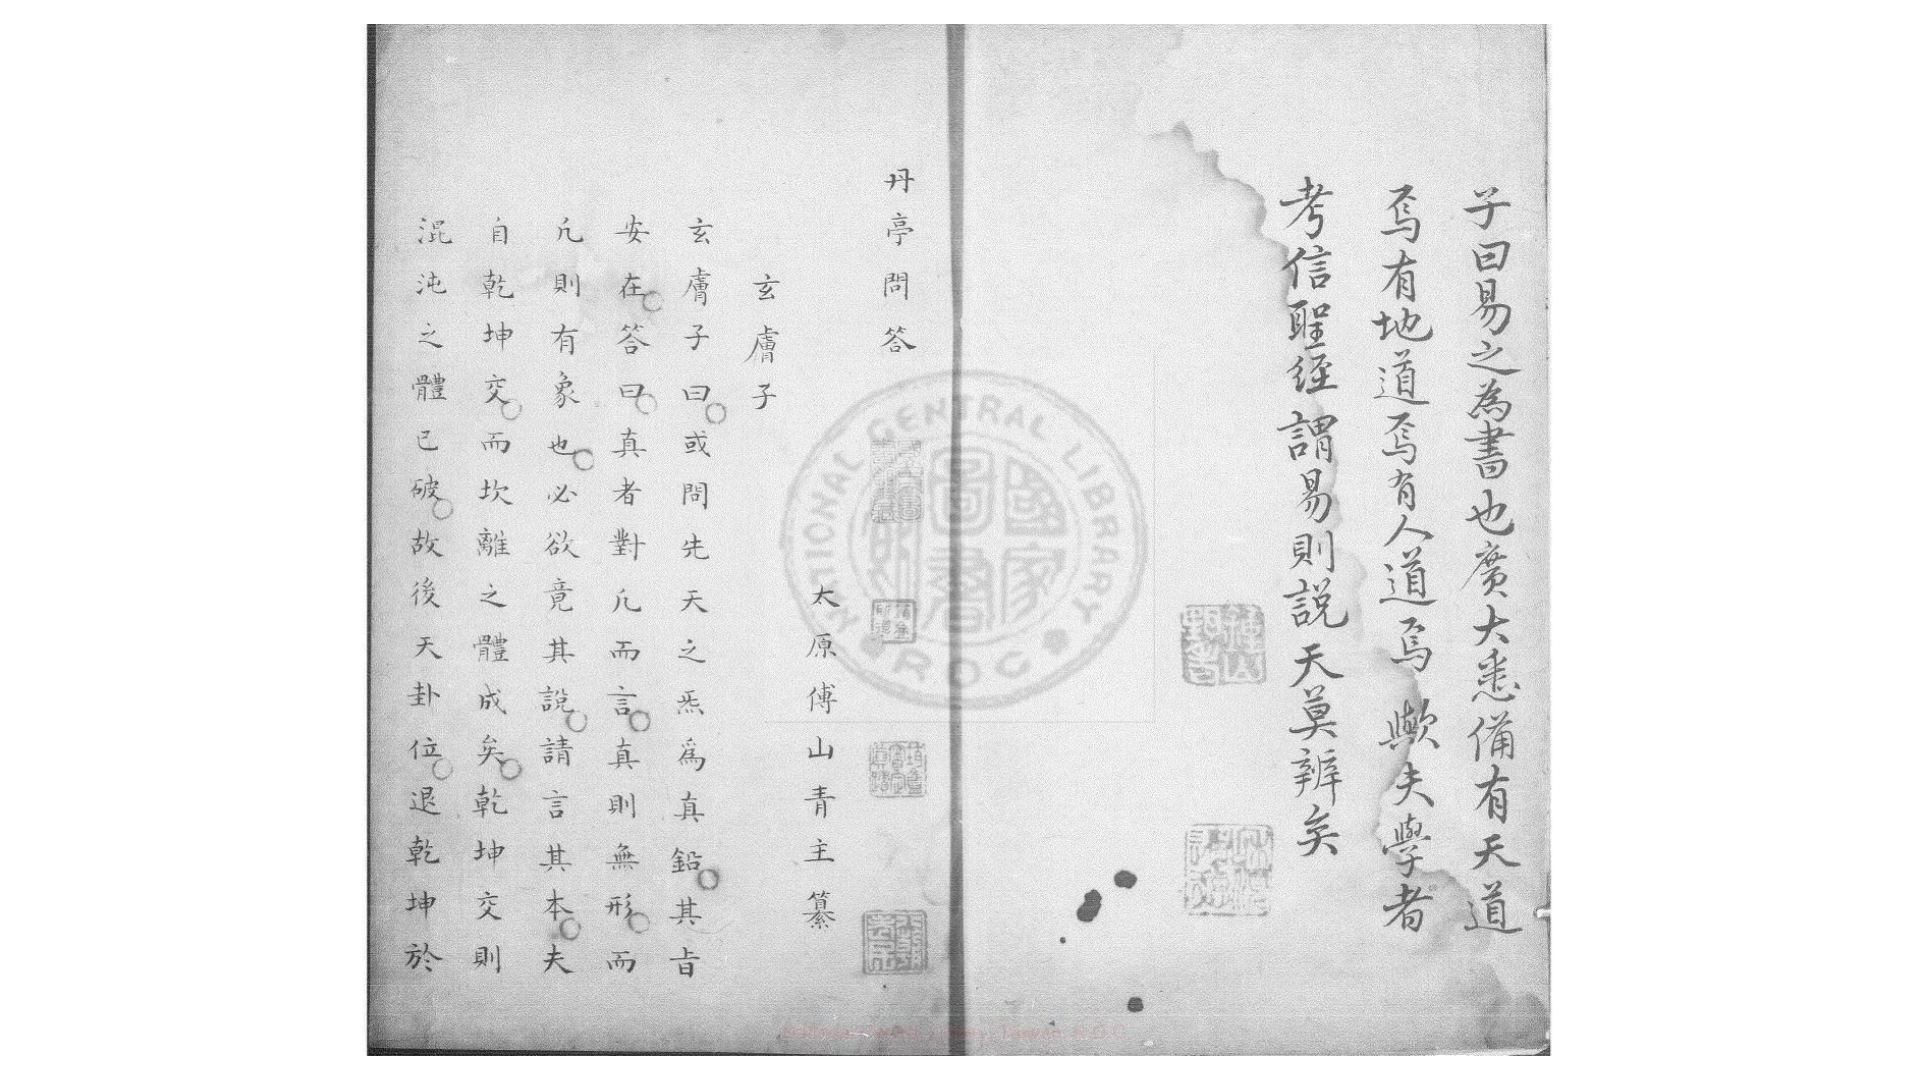 子曰易之為書也廣大悉備有天道
焉有地道焉有人道焉歟夫學者
考信聖經謂易則説天莫辨矣
丹亭問答
太原傅山青主纂
玄膚子
玄膚子曰或問先天之炁爲真鉛其旨
安在答曰真者對凡而言真則無形而
凡則有象也必欲竟其説請言其本夫
自乾坤交而坎離之體成矣乾坤交則
混沌之體已破故後天卦位退乾坤於
NATIONAL CENTRAL LIBRARY
ROC
國家圖書館